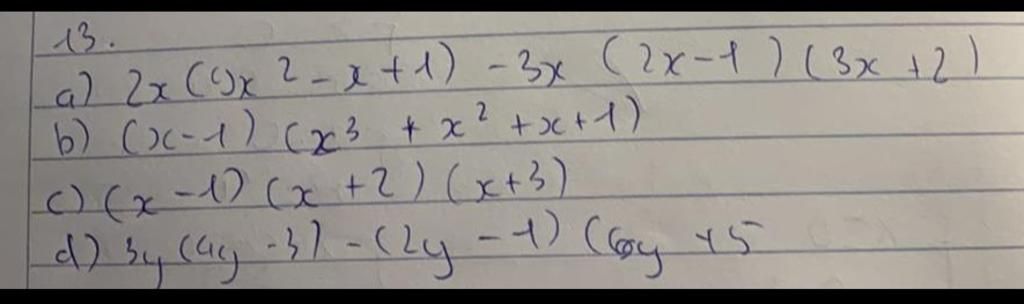 13.
a) 2x(9x² - x + 1) - 3x (2x - 1) (3x + 2)
b) (x - 1) (x³ + x² + x + 1)
c) (x - 1) (x + 2) (x + 3)
d) 3y (4y - 3) - (2y - 1) (6y + 5